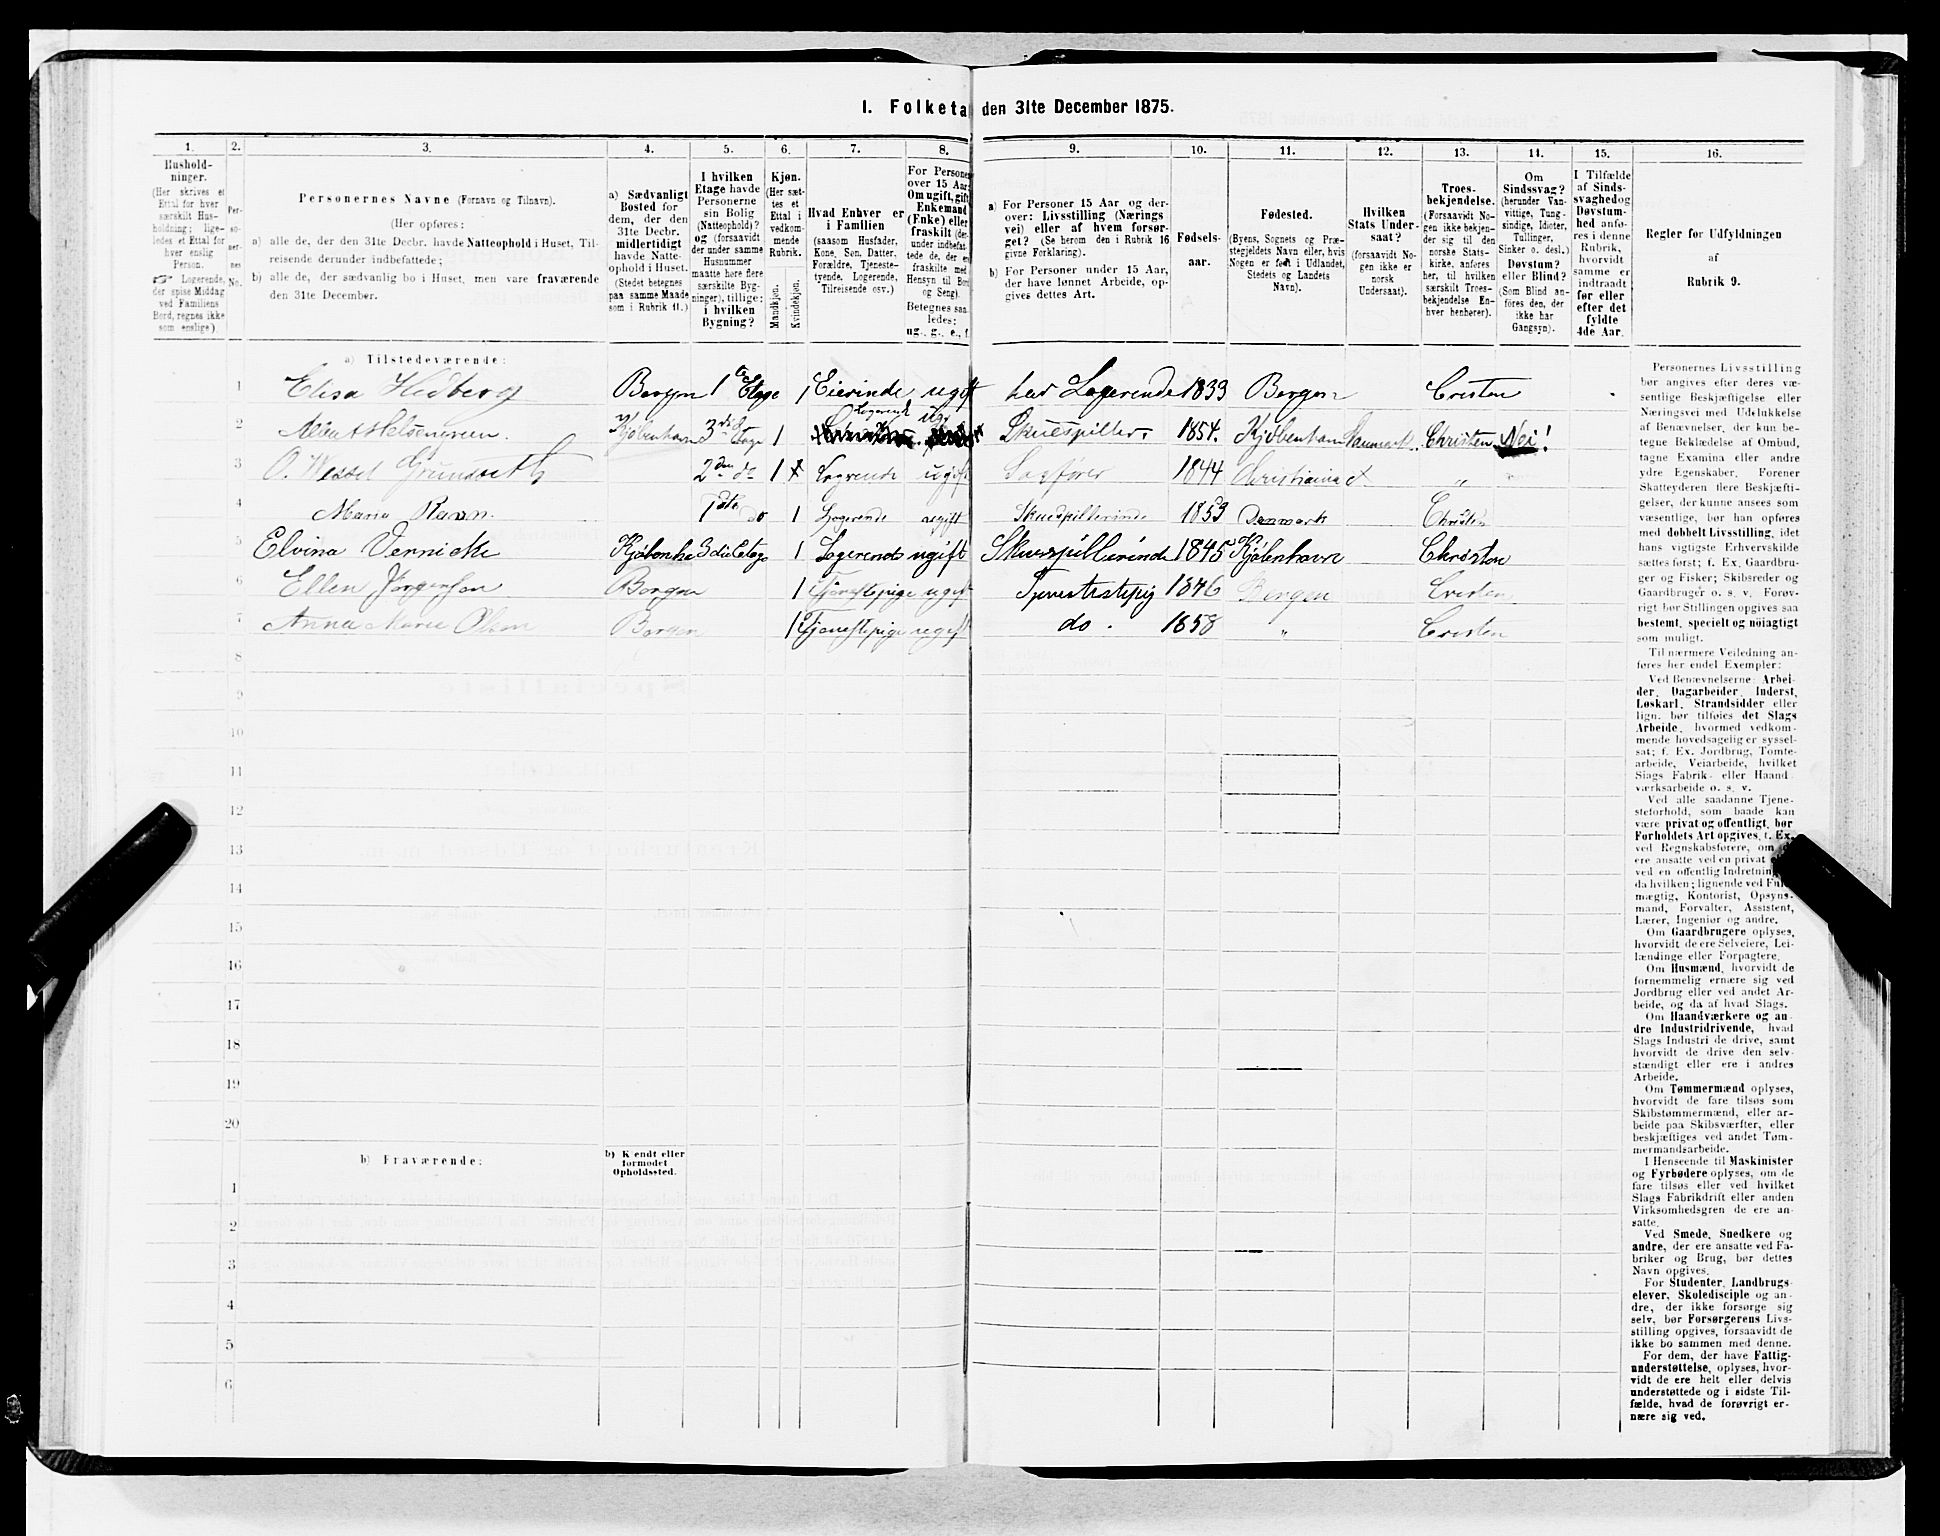 1. Folketa den 31te December 1875.
1.
Hushold-
ninger.
(Her skrives et
Ettal for hver
særskilt Hus-
holdning; lige-
ledes et Ettal for
hver enslig
Person.
Logerende,
der spise Middag
ved Familiens
Bord, regnes ikke
som enslige)
2.
Per-
so-
ner-
nes
No.
3.
Personernes Navne (Fornavn og Tilnavn).
(Her opføres:
a) alle de, der den 31te Decbr. havde Natteophold i Huset, Til-
reisende derunder indbefattede;
b) alle de, der sædvanlig bo i Huset, men vare fraværende
den 31te December.
4.
a) Sædvanligt
Bosted for
dem, der den
31te Decbr.
midlertidigt
havde Natte-
ophold i Huset.
(Stedet betegnes
paa samme Maade
som i Rubrik 11.)
5.
I hvilken
Etage havde
Personerne
sin Bolig
(Natteophold)?
og (forsaavidt
der under samme
Husnummer
maatte høre flere
særskilte Byg-
ninger), tillige:
i hvilken
Bygning?
6.
Kjøn.
(Her sæt-
tes et
Ettal i
vedkom-
mende
Rubrik.
Mandkjøn.
Kvindekjøn.
7.
Hvad Enhver er
i Familien
(saasom Husfader,
Kone, Søn, Datter,
Forældre, Tjeneste-
tyende, Logerende,
Tilreisende osv.)
8.
For Persone
over 15 Aar:
Om ugift, gift
Enkemand
(Enke) eller
fraskilt (der-
under indbefat-
tede de, der e
fraskilte med
Hensyn til Bord
og Seng).
Betegnes saa-
ledes:
ug., g., e., f.
9.
a) For Personer 15 Aar og der-
over: Livsstilling (Nærings
vei) eller af hvem forsør-
get? (Se herom den i Rubrik 16
givne Forklaring).
b) For Personer under 15 Aar,
der have lønnet Arbeide, op-
gives dettes Art.
10.
Fødsels-
aar.
11.
Fødested.
(Byens, Sognets og Præ-
stegjeldets Navn eller, hvis
Nogen er født i Udlandet,
Stedets og Landets
Navn).
12.
Hvilken
Stats Under-
saat?
(forsaavidt No-
gen ikke er
norsk
Undersaat).
13.
Troes-
bekjendelse.
(Forsaavidt No-
gen ikke bekjen-
der sig til den
norske Stats-
kirke, anføres
her, til hvilken
særskilt Troes-
bekjendelse En-
hver henhører).
14.
Om
Sindssvag?
(herunder Van-
vittige, Tung-
sindige, Idioter,
Tullinger,
Sinker o. desl.)
Døvstum?
eller Blind?
(Som Blind an-
føres den, der
ikke har
Gangsyn).
15.
I Tilfælde
af Sinds-
svaghed og
Døvstum-
hed anfø-
res i denne
Rubrik,
hvorvidt
samme er
indtraadt
før eller
efter det
fyldte
4de Aar.
16.
Regler for Udfyldningen
af
Rubrik 9.
a) Tilstedeværende:
1 Elisa Hedberg Bergen 1te Etage 1 Eierinde ugift har Logerende 1833 Bergen Cristen
2 Kjøbenhavn 3die Etage 1 Logerende ug. Skuespiller 1854. Kjøbenhavn Danmark. Christen Nei!
3 O. Wessel Grundseth 2den do 1 Logrende ugift Sagfører 1844 Christiania "
4 Marie Ravn 1ste do 1 Logerende ugift Skuespillerinde 1853 Danmark Christen
5 Elvina Vernicke Kjøbenha 3die Etage 1 Logerende ugift Skuespillerinde 1845 Kjøbenhavn Christen
6 Ellen Jørgensen Bergen 1 Tjenestepige ugift 1846 Bergen Cristen
7 Anna Marie Olsen Bergen 1 Tjenestepige ugift do. 1858 " Cristen
8
9
10
11
12
13
14
15
16
17
18
19
20
b) Fraværende:
b) Kendt eller
formodet
Opholdssted.
1
2
3
4
5
6
Personernes Livsstilling
bør angives efter deres væ-
sentlige Beskjæftigelse eller
Næringsvei med Udelukkelse
af Benævnelser, der kun be-
tegne Beklædelse af Ombud,
tagne Examina eller andre
ydre Egenskaber. Forener
Skatteyderen flere Beskjæfti-
gelser, der kunne ansees som
væsentlige, bør han opføres
med dobbelt Livsstilling, idet
hans vigtigste Erhvervskilde
sættes først; f. Ex. Gaardbru-
ger og Fisker; Skibsreder og
Gaardbruger o. s. v. Forøv-
rigt bør Stillingen opgives saa
bestemt, specielt og nøiagtigt
som muligt.
Til nærmere Veiledning an-
føres her endel Exempler:
Ved Benævnelserne: Arbei-
der, Dagarbeider, Inderst,
Løskarl, Strandsidder eller
lign. bør tilføies det Slags
Arbeide, hvormed vedkom-
mende hovedsagelig er syssel-
sat; f. Ex. Jordbrug, Tomte-
arbeide, Veiarbeide, hvilket
Slags Fabrik- eller Haand-
værksarbeide o. s. v.
Ved alle saadanne Tjene-
steforhold, som baade kan
være privat og offentligt, bør
Forholdets Art opgives, f. Ex.
ved Regnskabsførere, om d
ere ansatte ved en privat e
ved en offentlig Indretnin
da hvilken; lignende ved Ful
mægtig, Kontorist, Opsyns-
mand, Forvalter, Assistent,
Lærer, Ingeniør og andre.
Om Gaardbrugere oplyses,
hvorvidt de ere Selveiere, Lei-
lændinge eller Forpagtere.
Om Husmænd, hvorvidt de
fornemmelig ernære sig ved
Jordbrug eller ved andet Ar-
beide, og da af hvad Slags.
Om Haandværkere og an-
dre Industridrivende, hvad
Slags Industri de drive, samt
hvorvidt de drive den selv-
stændigt eller ere i andres
Arbeide.
Om Tømmermænd oplyses,
hvorvidt de fare tilsøs som
Skibstømmermænd, eller ar-
beide paa Skibsværfter, eller
beskjæftiges ved andet Tøm-
mermandsarbeide.
I Henseende til Maskinister
og Fyrbødere oplyses, om de
fare tilsøs eller ved hvilket
Slags Fabrikdrift eller anden
Virksomhedsgren de ere an-
satte.
Ved Smede, Snedkere og
andre, der ere ansatte ved Fa-
briker og Brug, bør dettes
Navn opgives.
For Studenter, Landbrugs-
elever, Skoledisciple og an-
dre, der ikke forsørge sig
selv, bør Forsørgerens Livs-
stilling opgives, forsaavidt de
ikke bo sammen med denne.
For dem, der have Fattig-
understøttelse, oplyses, hvor-
vidt de ere helt eller delvis
understøttede og i sidste Til-
fælde, hvad de forøvrigt er-
nære sig ved.